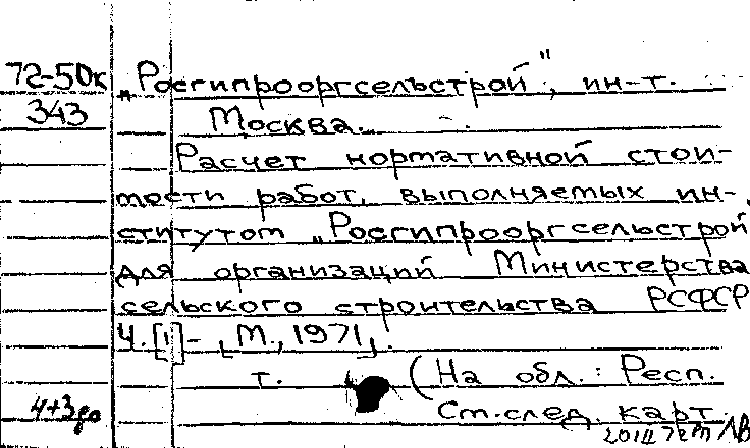 72-50к
343
„Росгипрооргсельстрой", ин-т.
Москва.
Расчет нормативной стои-
мости работ, выполняемых ин-
ститутом „Росгипрооргсельстрой"
для организаций Министерства
сельского строительства РСФСР
Ч.[1]- [М., 1971].
т. (На обл.: Респ.
См.след. карт.
4+3